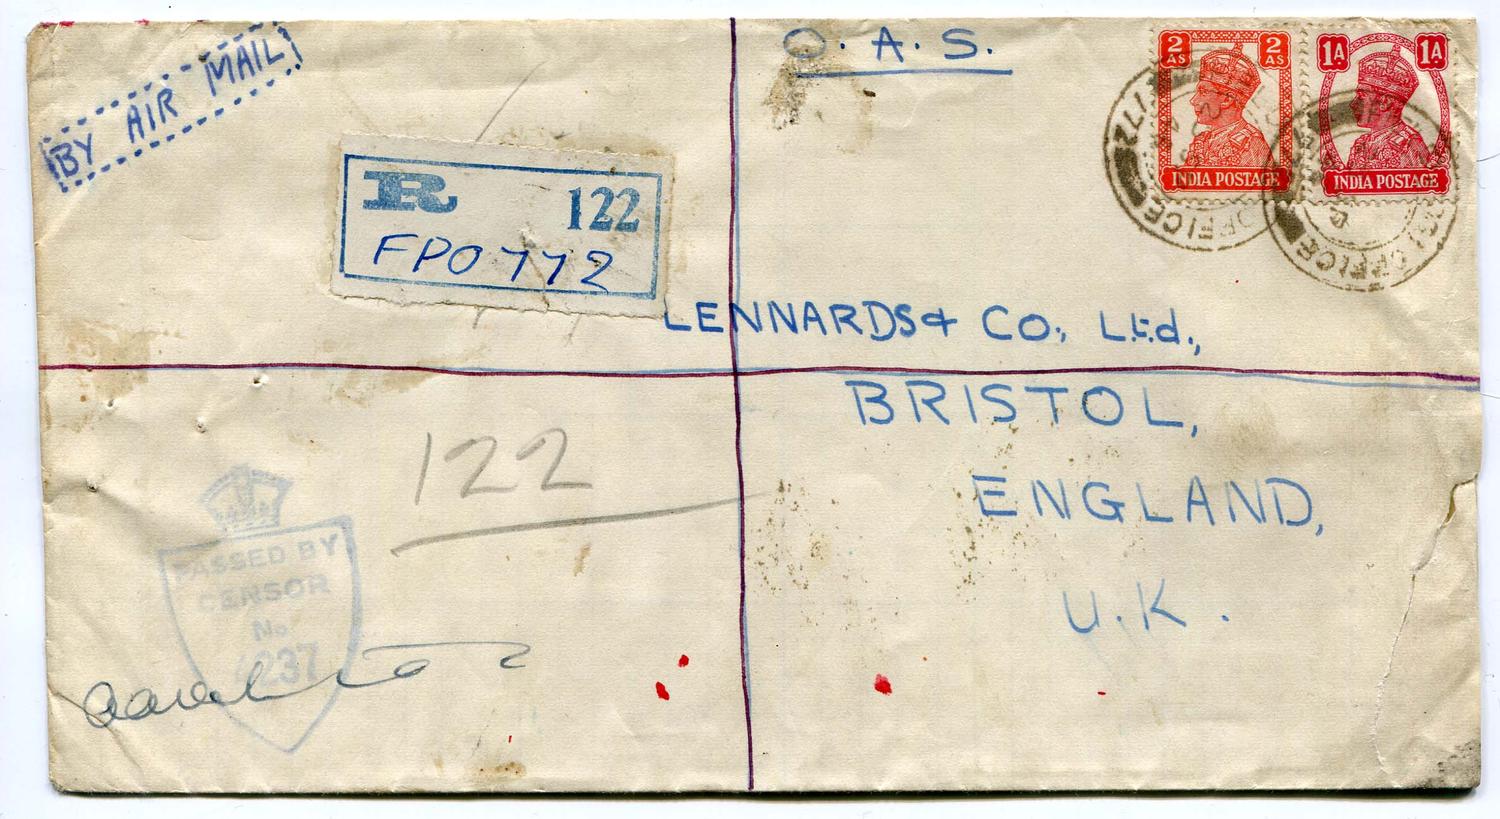 BY AIR MAIL
O. A. S.
2 AS 2 AS
INDIA POSTAGE
1A 1A
INDIA POSTAGE
OFFICE
OFFICE
R 122
FPO 772
LENNARDS & Co., Ltd.,
BRISTOL,
ENGLAND,
U.K.
122
PASSED BY
CENSOR
No.
237